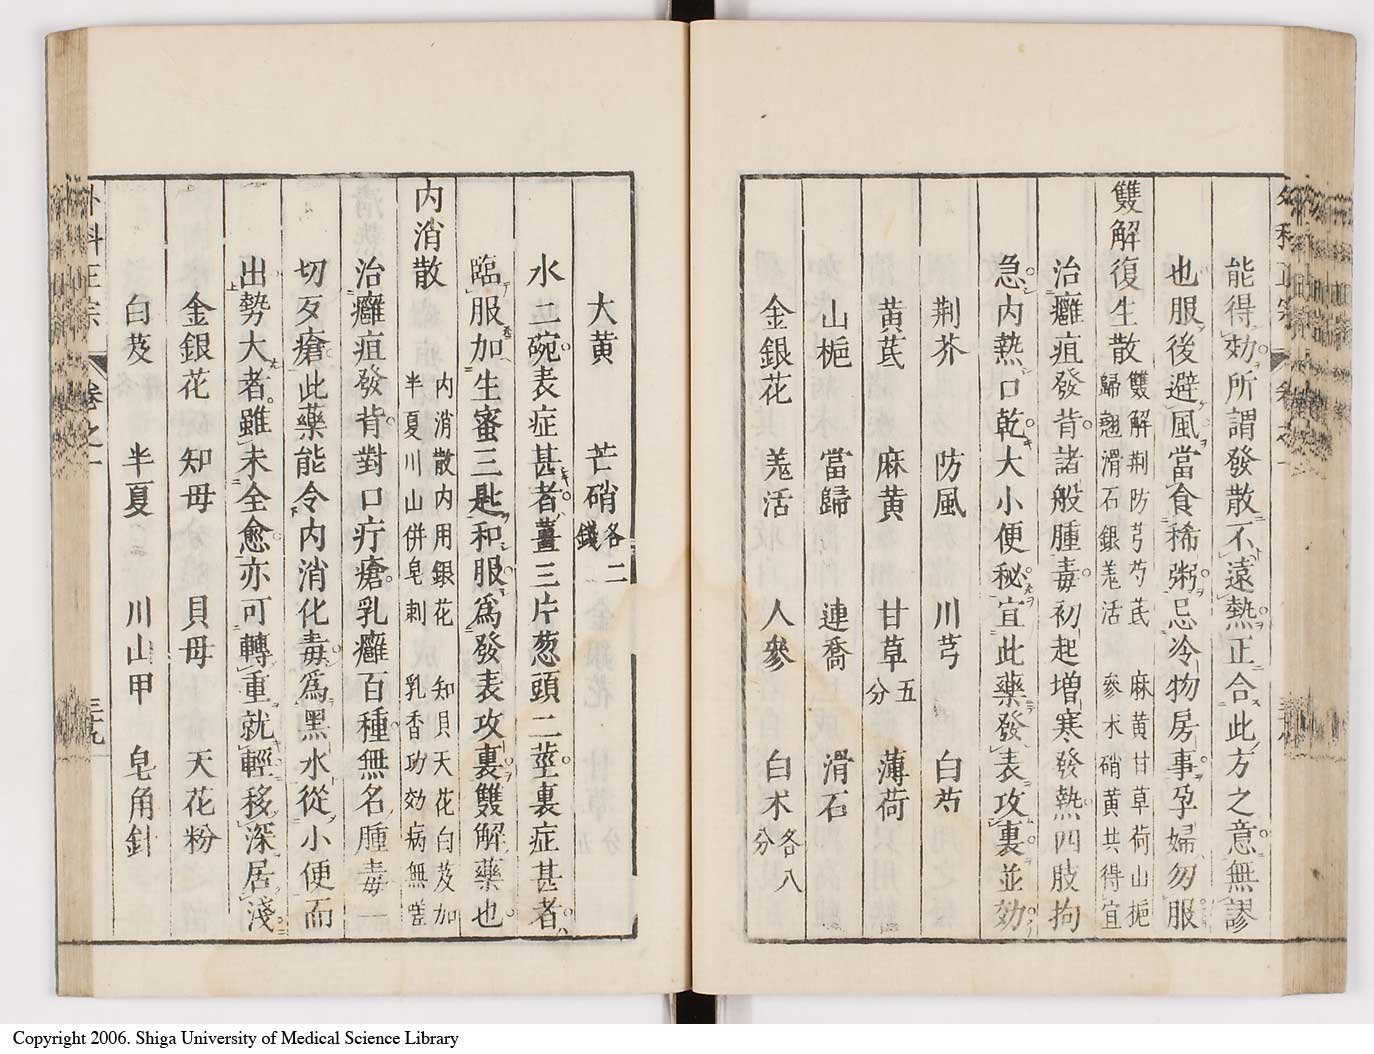 能得効所謂發散不遠熱正合此方之意無謬
也服後避風當食稀粥忌冷物房事孕婦勿服
雙解復生散 雙解荆防芎芍芪 麻黄甘草荷山梔
歸翹滑石銀羗活 參朮硝黄共得宜
治癰疽發背諸般腫毒初起增寒發熱四肢拘
急内熱口乾大小便秘宜此藥發表攻裏並効
荆芥 防風 川芎 白芍
黄芪 麻黄 甘草 五分 薄荷
山梔 當歸 連喬 滑石
金銀花 羗活 人參 白朮 各八分
大黄 芒硝 各二錢
水二碗表症甚者薑三片葱頭二莖裏症甚者
臨服加生蜜三匙和服爲發表攻裏雙解藥也
内消散 内消散内用銀花 知貝天花白芨加
半夏川山併皂刺 乳香功効病無嗟
治癰疽發背對口疔瘡乳癰百種無名腫毒一
切歹瘡此藥能令内消化毒爲黑水從小便而
出勢大者雖未全愈亦可轉重就輕移深居淺
金銀花 知母 貝母 天花粉
白芨 半夏 川山甲 皂角針
外科正宗 卷之一 三十九